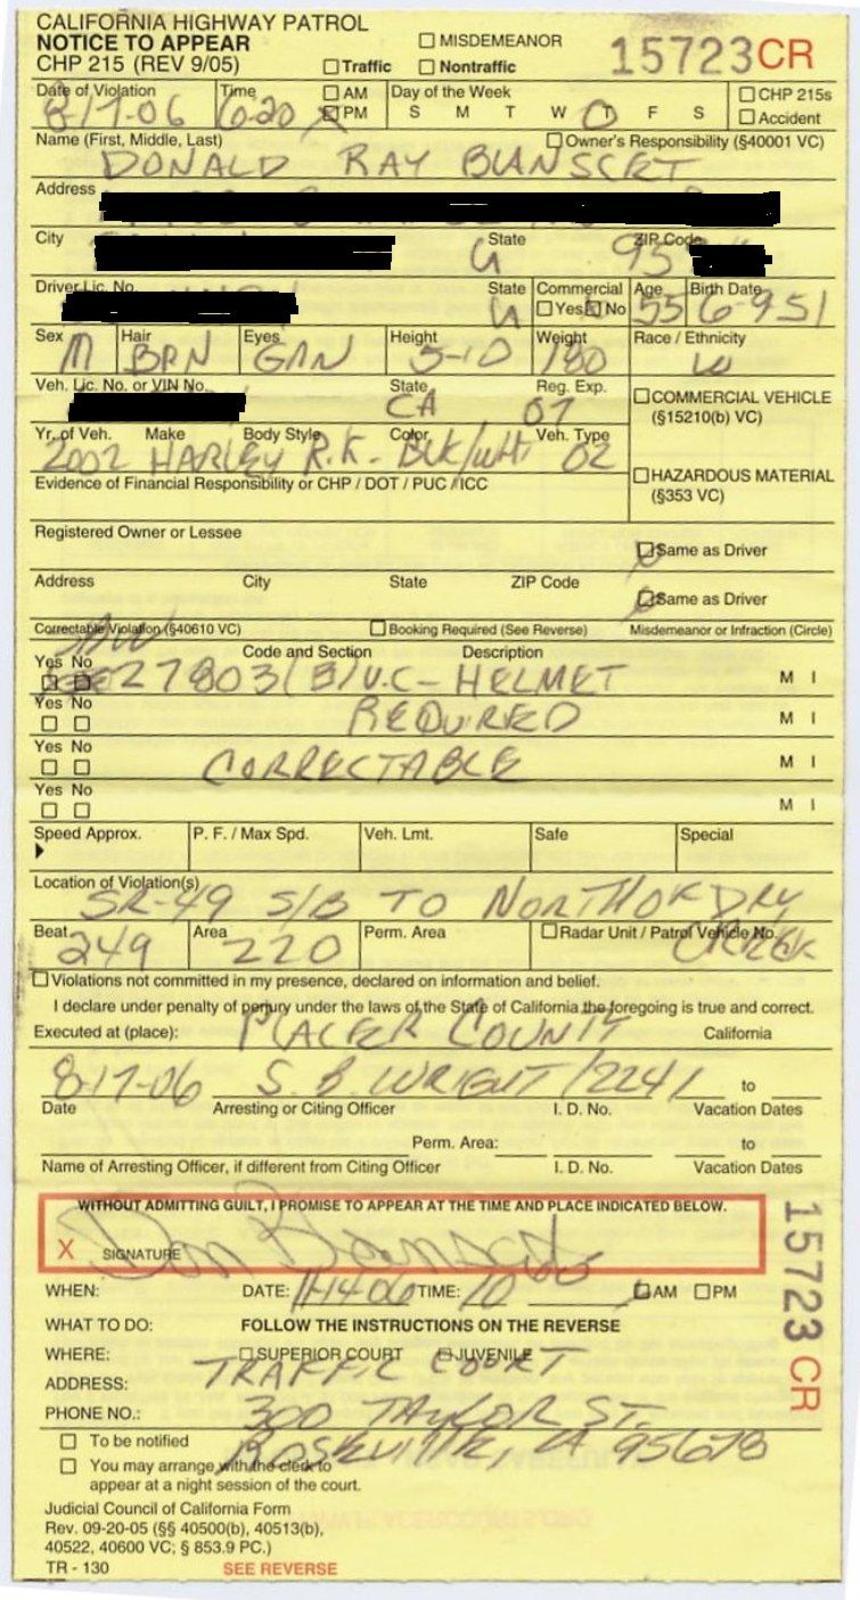 CALIFORNIA HIGHWAY PATROL
NOTICE TO APPEAR
CHP 215 (REV 9/05)
☐ MISDEMEANOR
☐ Traffic ☐ Nontraffic
15723CR
Date of Violation Time ☐ AM Day of the Week ☐ CHP 215s
8-17-06 6:20 ☒ PM S M T W T F S ☐ Accident
Name (First, Middle, Last) ☐ Owner's Responsibility (§40001 VC)
DONALD RAY BLANSCET
Address
City State ZIP Code
CA 95
Driver Lic. No. State Commercial Age Birth Date
CA ☐ Yes ☒ No 55 6-9-51
Sex Hair Eyes Height Weight Race / Ethnicity
M BRN GRN 5-10 180 W
Veh. Lic. No. or VIN No. State Reg. Exp. ☐ COMMERCIAL VEHICLE
CA 07 (§15210(b) VC)
Yr. of Veh. Make Body Style Color Veh. Type
2002 HARLEY R.K. - BLK/WHI 02
☐ HAZARDOUS MATERIAL
(§353 VC)
Evidence of Financial Responsibility or CHP / DOT / PUC / ICC
Registered Owner or Lessee
☒ Same as Driver
Address City State ZIP Code
☒ Same as Driver
Correctable Violation (§40610 VC) ☐ Booking Required (See Reverse) Misdemeanor or Infraction (Circle)
Yes No Code and Section Description
27803(B) V.C - HELMET M I
Yes No
☐ ☐ REQUIRED M I
Yes No
☐ ☐ CORRECTABLE M I
Yes No
☐ ☐ M I
Speed Approx. P. F. / Max Spd. Veh. Lmt. Safe Special
Location of Violation(s)
SR-49 S/B TO NORTH OF DRY
CREEK
Beat Area Perm. Area ☐ Radar Unit / Patrol Vehicle No.
249 220
☐ Violations not committed in my presence, declared on information and belief.
I declare under penalty of perjury under the laws of the State of California the foregoing is true and correct.
Executed at (place): PLACER COUNTY California
8-17-06 S. B. WRIGHT /2241 to
Date Arresting or Citing Officer I. D. No. Vacation Dates
Perm. Area: to
Name of Arresting Officer, if different from Citing Officer I. D. No. Vacation Dates
WITHOUT ADMITTING GUILT, I PROMISE TO APPEAR AT THE TIME AND PLACE INDICATED BELOW.
X SIGNATURE Don Blanscet
15723 CR
WHEN: DATE: 11-14-06 TIME: 10 ☒ AM ☐ PM
WHAT TO DO: FOLLOW THE INSTRUCTIONS ON THE REVERSE
WHERE: ☐ SUPERIOR COURT ☐ JUVENILE
TRAFFIC COURT
ADDRESS:
PHONE NO.: 300 TAYLOR ST.
☐ To be notified ROSEVILLE, CA 95678
☐ You may arrange with the clerk to
appear at a night session of the court.
Judicial Council of California Form
Rev. 09-20-05 (§§ 40500(b), 40513(b),
40522, 40600 VC; § 853.9 PC.)
TR - 130 SEE REVERSE